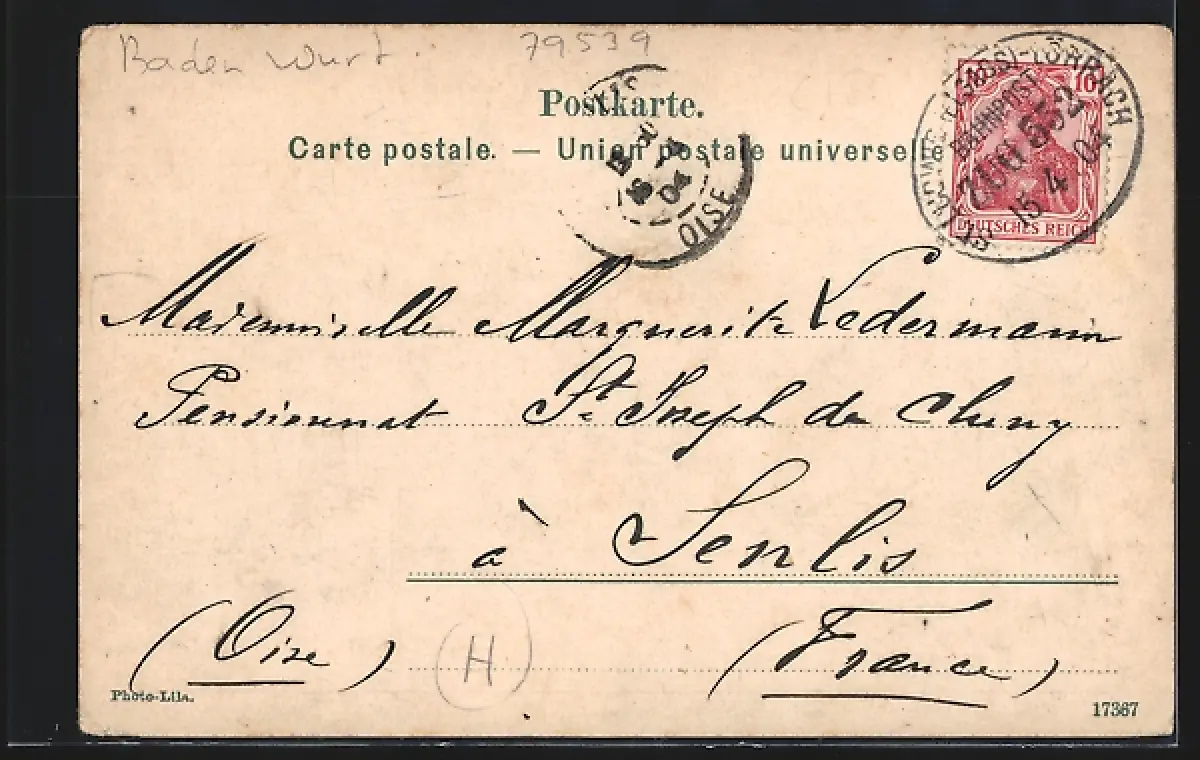 Baden Wurt.
79539
Postkarte.
Carte postale. — Union postale universelle
ST. LUDWIG (ELSASS)-LÖRRACH
BAHNPOST
ZUG 553
15 4 04
10
DEUTSCHES REICH
SENLIS
16 04
OISE
Mademoiselle Marguerite Ledermann
Pensionnat St. Joseph de Cluny
à Senlis
(Oise) (France)
H
Photo-Lila.
17367